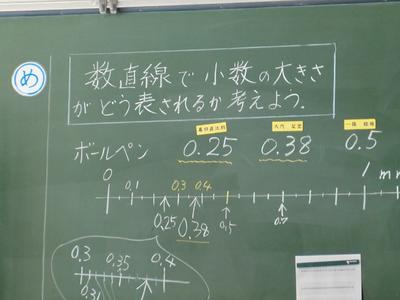 め
数直線で小数の大きさ
がどう表されるか考えよう.
ボールペン 0.25 0.38 0.5
0 0.1 0.3 0.4 1 mm
0.25 0.38 0.5 0.7
0.3 0.35 0.4
0.31